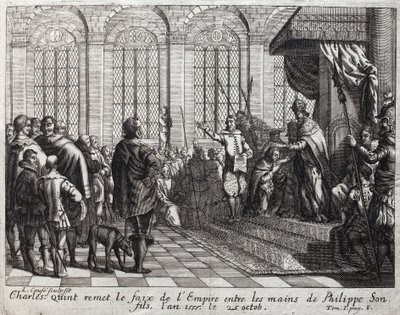 L. Causé sculpsit
Charles. Quint remet le faix de l'Empire entre les mains de Philippe Son
fils. l'an 1555. le 25 octob.
Tom. I. pag. 8.